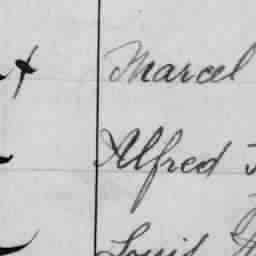 Marcel
Alfred
Louis